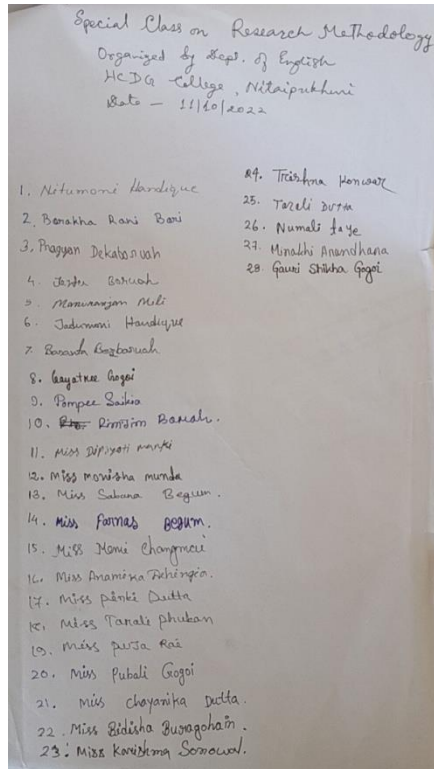 Special Class on Research Methodology
Organized by Dept. of English
HCDG College, Nitaipukhuri
Date – 11/10/2022
1. Nitumoni Handique
2. Barakha Rani Bari
3. Pragyan Dekabaruah
4. Baruah
5. Manuranjan Mili
6. Jadumoni Handique
7. Basanta Borbaruah
8. Gayatree Gogoi
9. Pompee Saikia
10. Rimjim Baruah.
11. Miss Dipjyoti manki
12. Miss monisha munda
13. Miss Sabana Begum.
14. Miss Farnas Begum.
15. Miss Changmai
16. Miss Anamika
17. Miss pinki Dutta
18. Miss Tarali phukan
19. Miss puja Rai
20. Miss Pubali Gogoi
21. miss chayanika Dutta.
22. Miss Bidisha Buragohain.
23. Miss Karishma Sonowal.
24. Trishna Konwar
25. Tarali Dutta
26. Numali
27. Minakhi Anandhana
28. Gauri Shikha Gogoi